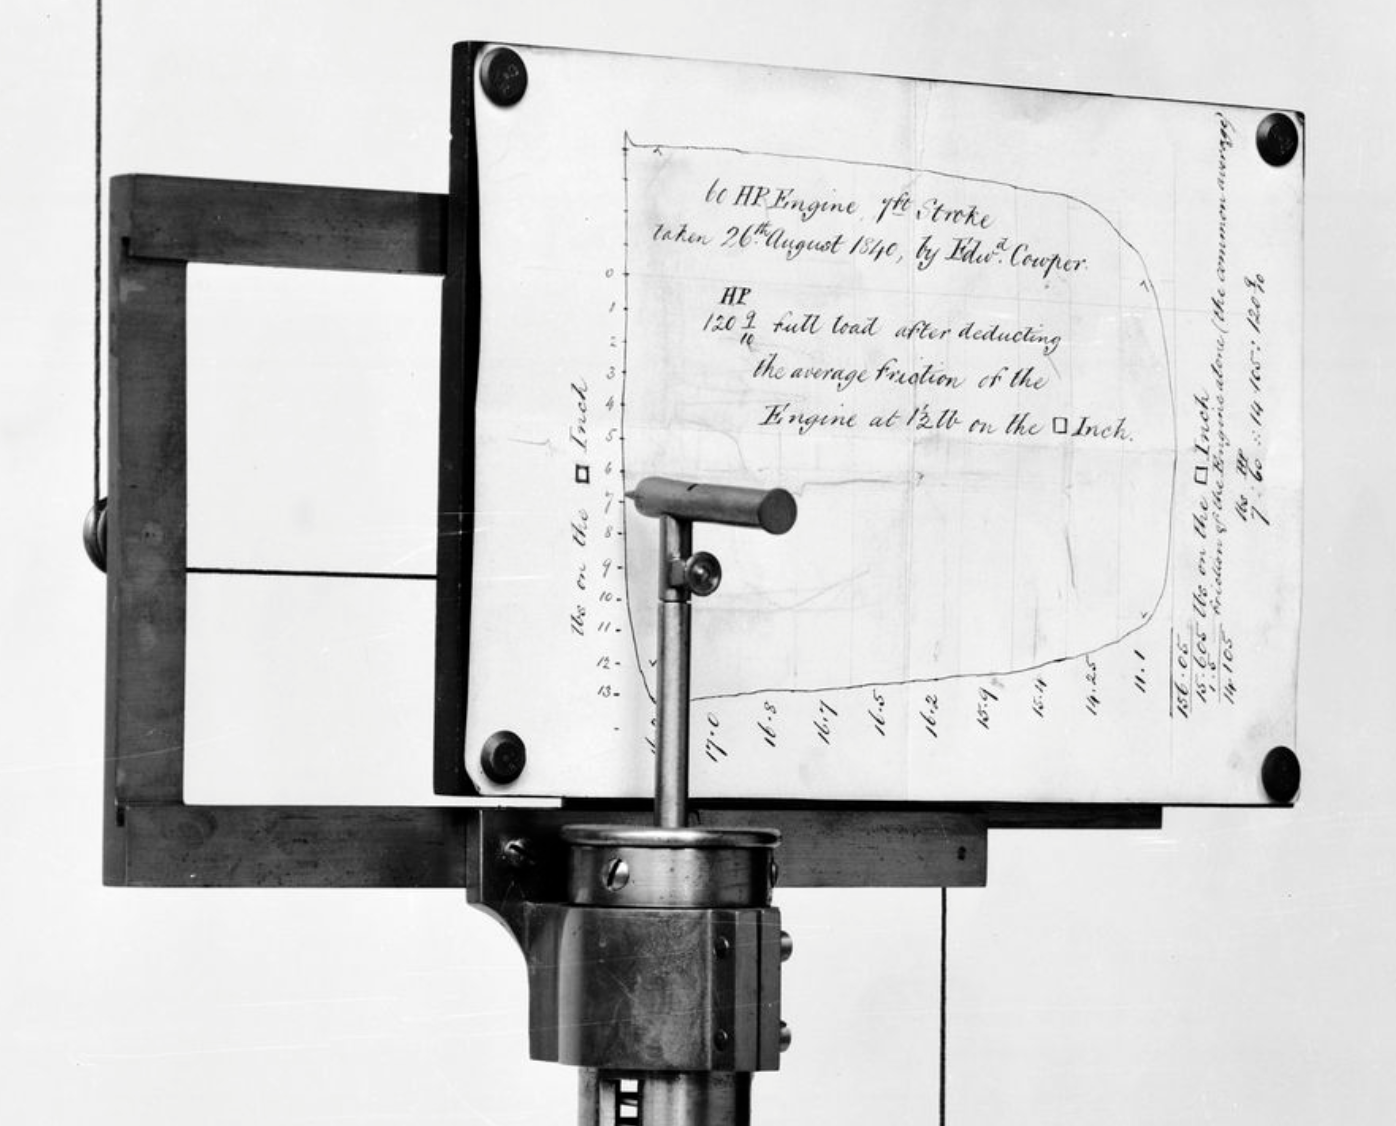 60 HP Engine, 7ft Stroke
taken 26th August 1840, by Edwd. Cowper.
HP
120 9/10 full load after deducting
the average friction of the
Engine at 1½ lb on the □ Inch.
lbs on the □ Inch
0
1
2
3
4
5
6
7
8
9
10
11
12
13
17.0
16.8
16.7
16.5
16.2
15.9
15.4
14.25
11.1
156.05
15.605 lbs on the □ Inch
1.5 Friction of the Engine alone (the common average)
14.105
lbs HP
7 : 60 :: 14.105 : 120 9/10